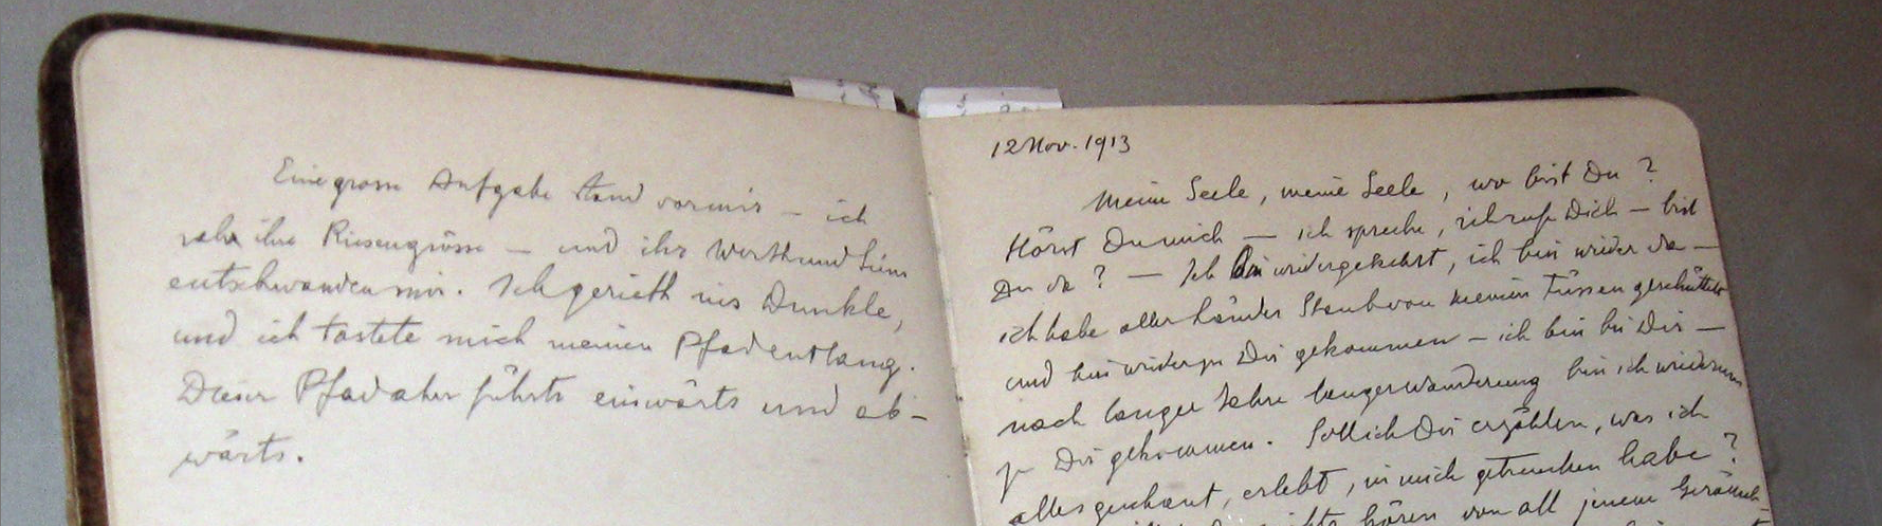 Eine grosse Aufgabe stand vor mir – ich
sah ihre Riesengrösse – und ihr Werth und Sinn
entschwanden mir. Ich gerieth ins Dunkle,
und ich tastete mich meinen Pfad entlang.
Dieser Pfad aber führte einwärts und ab-
wärts.
12 Nov. 1913
Meine Seele, meine Seele, wo bist Du?
Hörst Du mich – ich spreche, ich rufe Dich – bist
Du da? – Ich bin wiedergekehrt, ich bin wieder da –
ich habe aller Länder Staub von meinen Füssen geschüttelt
und bin wieder zu Dir gekommen – ich bin bei Dir –
nach langen Jahren langer Wanderung bin ich wiederum
zu Dir gekommen. Soll ich Dir erzählen, was ich
alles geschaut, erlebt, in mich getrunken habe?
hören von all jenem